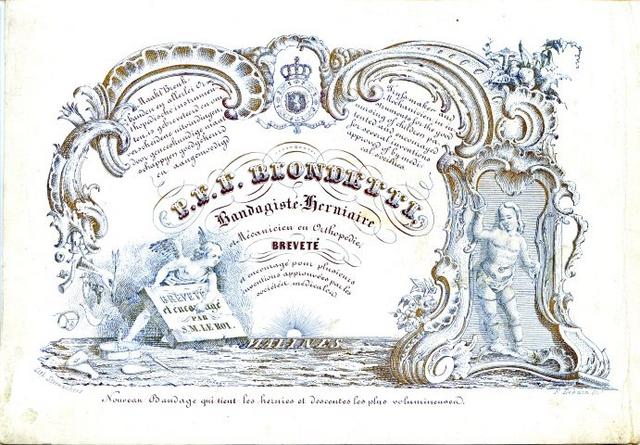 Maakt Breuk-
banden en allerlei Or-
thopedische instrumen-
ten is gebreveteerd en voor
verscheidene uitvindingen
door geneeskundige maat-
schappyen goedgekeurd
en aangemoedigd
Trussmaker and
Mechanician in
struments for the good
nursing of children pa-
tented and encouraged
for several inventions
approved of by medic.
societies.
BLONDETTI,
Bandagiste-Herniaire
et Mécanicien en Orthopedie,
BREVETÉ
et encouragé pour plusieurs
inventions approuvées par les
sociétés médicales.
BREVETÉ
et encouragé
PAR
S.M. LE ROI.
MALINES
Nouveau Bandage qui tient les hernies et descentes les plus volumineuses.